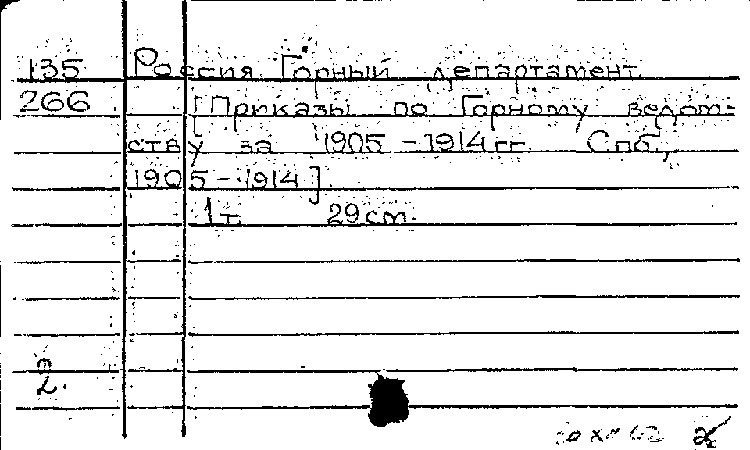 135 Россия. Горный департамент
266 [Приказы по Горному ведом-
ству за 1905-1914 гг. Спб.,
1905-1914]
1 т. 29 см.
2.